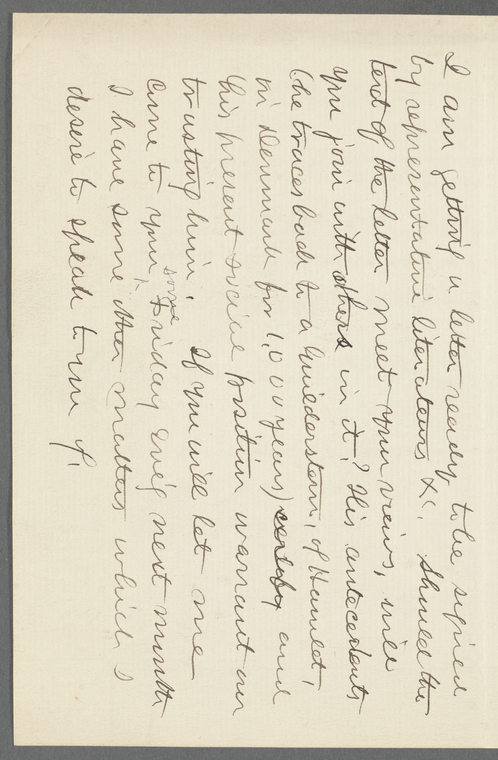 I am getting a letter ready to be signed
by representative literateurs &c. Should the
text of the letter meet your views, will
you join with others in it? His antecedents
(he traces back to a Guilderstern, of Hamlet,
in Denmark for 1,000 years) and
his present social position warrant our
trusting him. If you will let me
come to you, some Friday Eve'g next month
I have some other matters which I
desire to speak to you of.